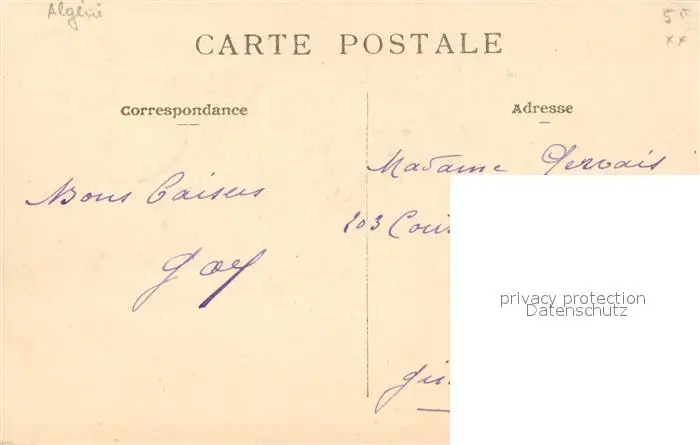 Algérie
5F
xx
CARTE POSTALE
Correspondance
Adresse
Bons baisers
Madame Gervais
203 Cour
privacy protection
Datenschutz